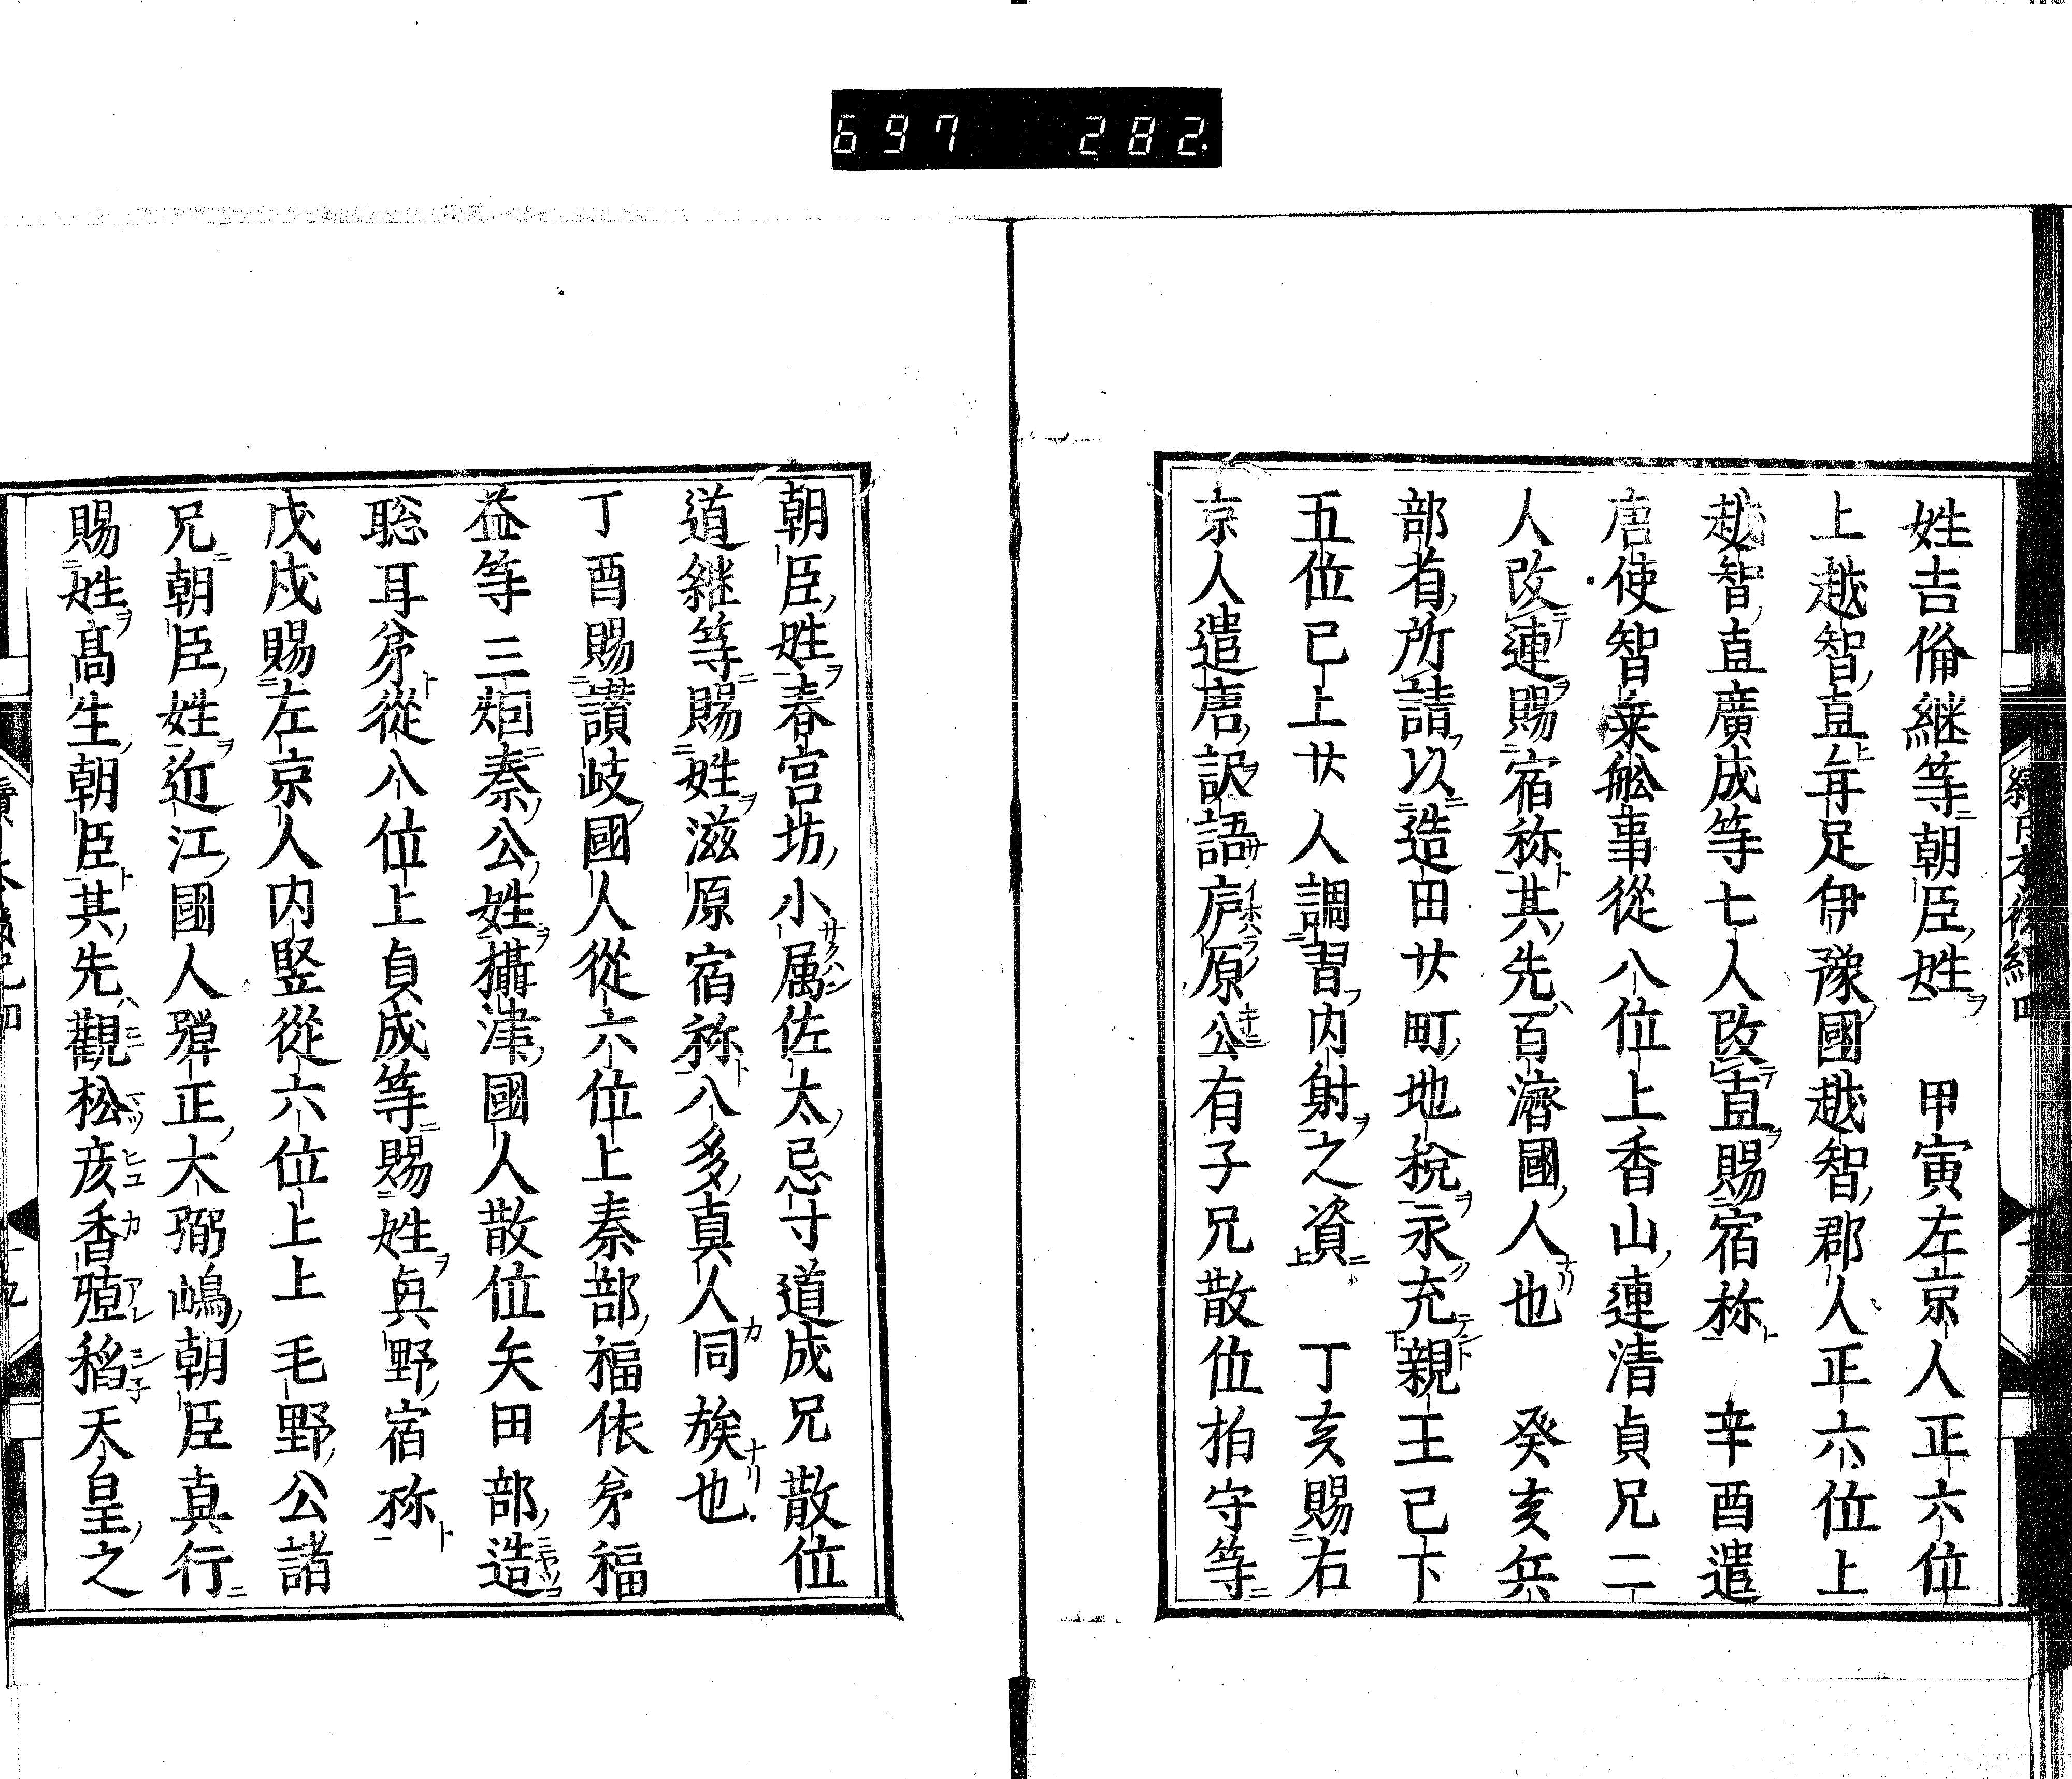 697 282.
續日本後紀四
姓吉備継等朝臣姓 甲寅左京人正六位
上越智直年足伊豫國越智郡人正六位上
越智直廣成等七人改直賜宿祢 辛酉遣
唐使知乗舩事從八位上香山連清貞兄二
人改連賜宿祢其先百濟國人也 癸亥兵
部省所請以造田廿町地税永充親王已下
五位已上廿人調習内射之資 丁亥賜右
京人遣唐訳語廬原公有子兄散位柏守等
朝臣姓春宮坊小属佐太忌寸道成兄散位
道継等賜姓滋原宿祢八多真人同族也
丁酉賜讃岐國人從六位上秦部福依弟福
益等三烟秦公姓攝津國人散位矢田部造
聡耳弟從八位上貞成等賜姓興野宿祢
戊戌賜左京人内竪從六位上上毛野公諸
兄朝臣姓近江國人弾正大弼嶋朝臣真行
賜姓髙生朝臣其先觀松彦香殖稻天皇之